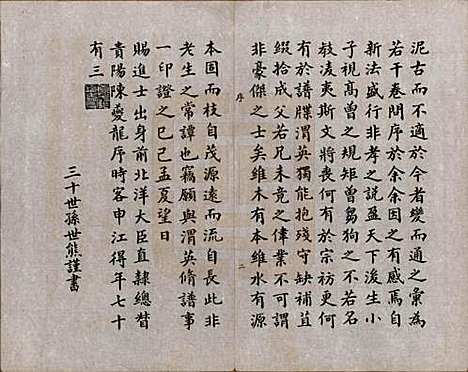 泥古而不適於今者變而通之彙為
若干卷問序於余余因之有感焉自
新法盛行非孝之說盈天下後生小
子視高曾之規矩曾芻狗之不若名
教凌夷斯文將喪何有於宗祊更何
有於譜牒渭英獨能抱殘守缺補苴
綴拾成父若兄未竟之偉業不可謂
非豪傑之士矣維木有本維水有源
序
二
本固而枝自茂源遠而流自長此非
老生之常譚也竊願與渭英脩譜事
一印證之己巳孟夏望日
賜進士出身前北洋大臣直隸總督
貴陽陳夔龍序時客申江得年七十
有三
三十世孫世熊謹書